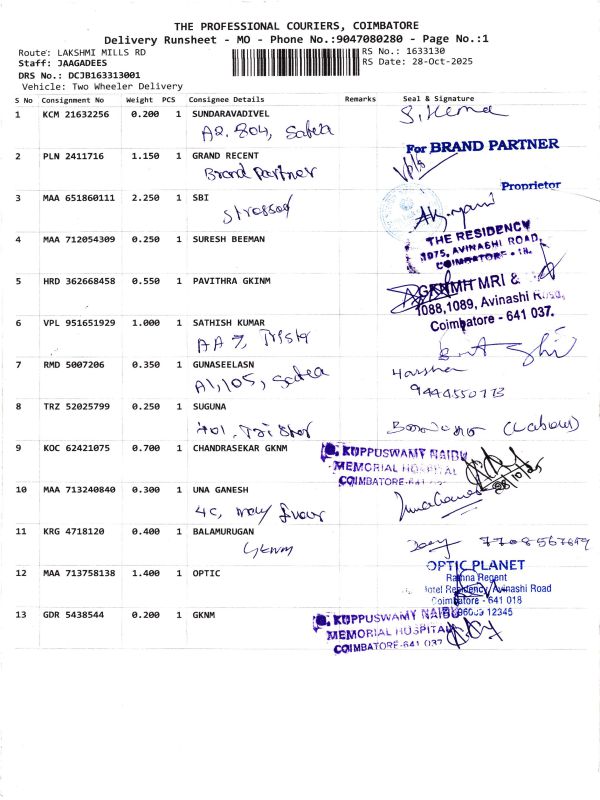 THE PROFESSIONAL COURIERS, COIMBATORE
Delivery Runsheet - MO - Phone No.:9047080280 - Page No.:1
Route: LAKSHMI MILLS RD
RS No.: 1633130
Staff: JAAGADEES
RS Date: 28-Oct-2025
DRS No.: DCJB163313001
Vehicle: Two Wheeler Delivery
S No Consignment No Weight PCS Consignee Details Remarks Seal & Signature
1 KCM 21632256 0.200 1 SUNDARAVADIVEL
A2. 804, Safea
2 PLN 2411716 1.150 1 GRAND RECENT
For BRAND PARTNER
Brand Partner
Proprietor
3 MAA 651860111 2.250 1 SBI
4 MAA 712054309 0.250 1 SURESH BEEMAN
THE RESIDENCY
1075, AVINASHI ROAD,
COIMBATORE - 18.
5 HRD 362668458 0.550 1 PAVITHRA GKINM
GKNMH MRI &
1088,1089, Avinashi Road,
Coimbatore - 641 037.
6 VPL 951651929 1.000 1 SATHISH KUMAR
7 RMD 5007206 0.350 1 GUNASEELASN
A1,105, Safea
Harsha
8 TRZ 52025799 0.250 1 SUGUNA
401, Tri Star
(Labour)
9 KOC 62421075 0.700 1 CHANDRASEKAR GKNM
G. KUPPUSWAMY NAIDU
MEMORIAL HOSPITAL
COIMBATORE-641
28/10/25
10 MAA 713240840 0.300 1 UNA GANESH
4C,
11 KRG 4718120 0.400 1 BALAMURUGAN
GKNM
12 MAA 713758138 1.400 1 OPTIC
OPTIC PLANET
Rathna Regent
Hotel Residency Avinashi Road
Coimbatore - 641 018
96009 12345
13 GDR 5438544 0.200 1 GKNM
G. KUPPUSWAMY NAIDU
MEMORIAL HOSPITAL
COIMBATORE-641 037